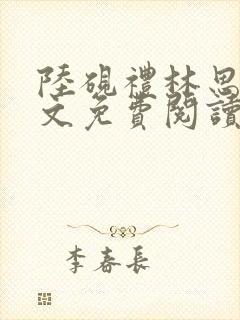 陸硯禮林思
文免費閱讀
李春長